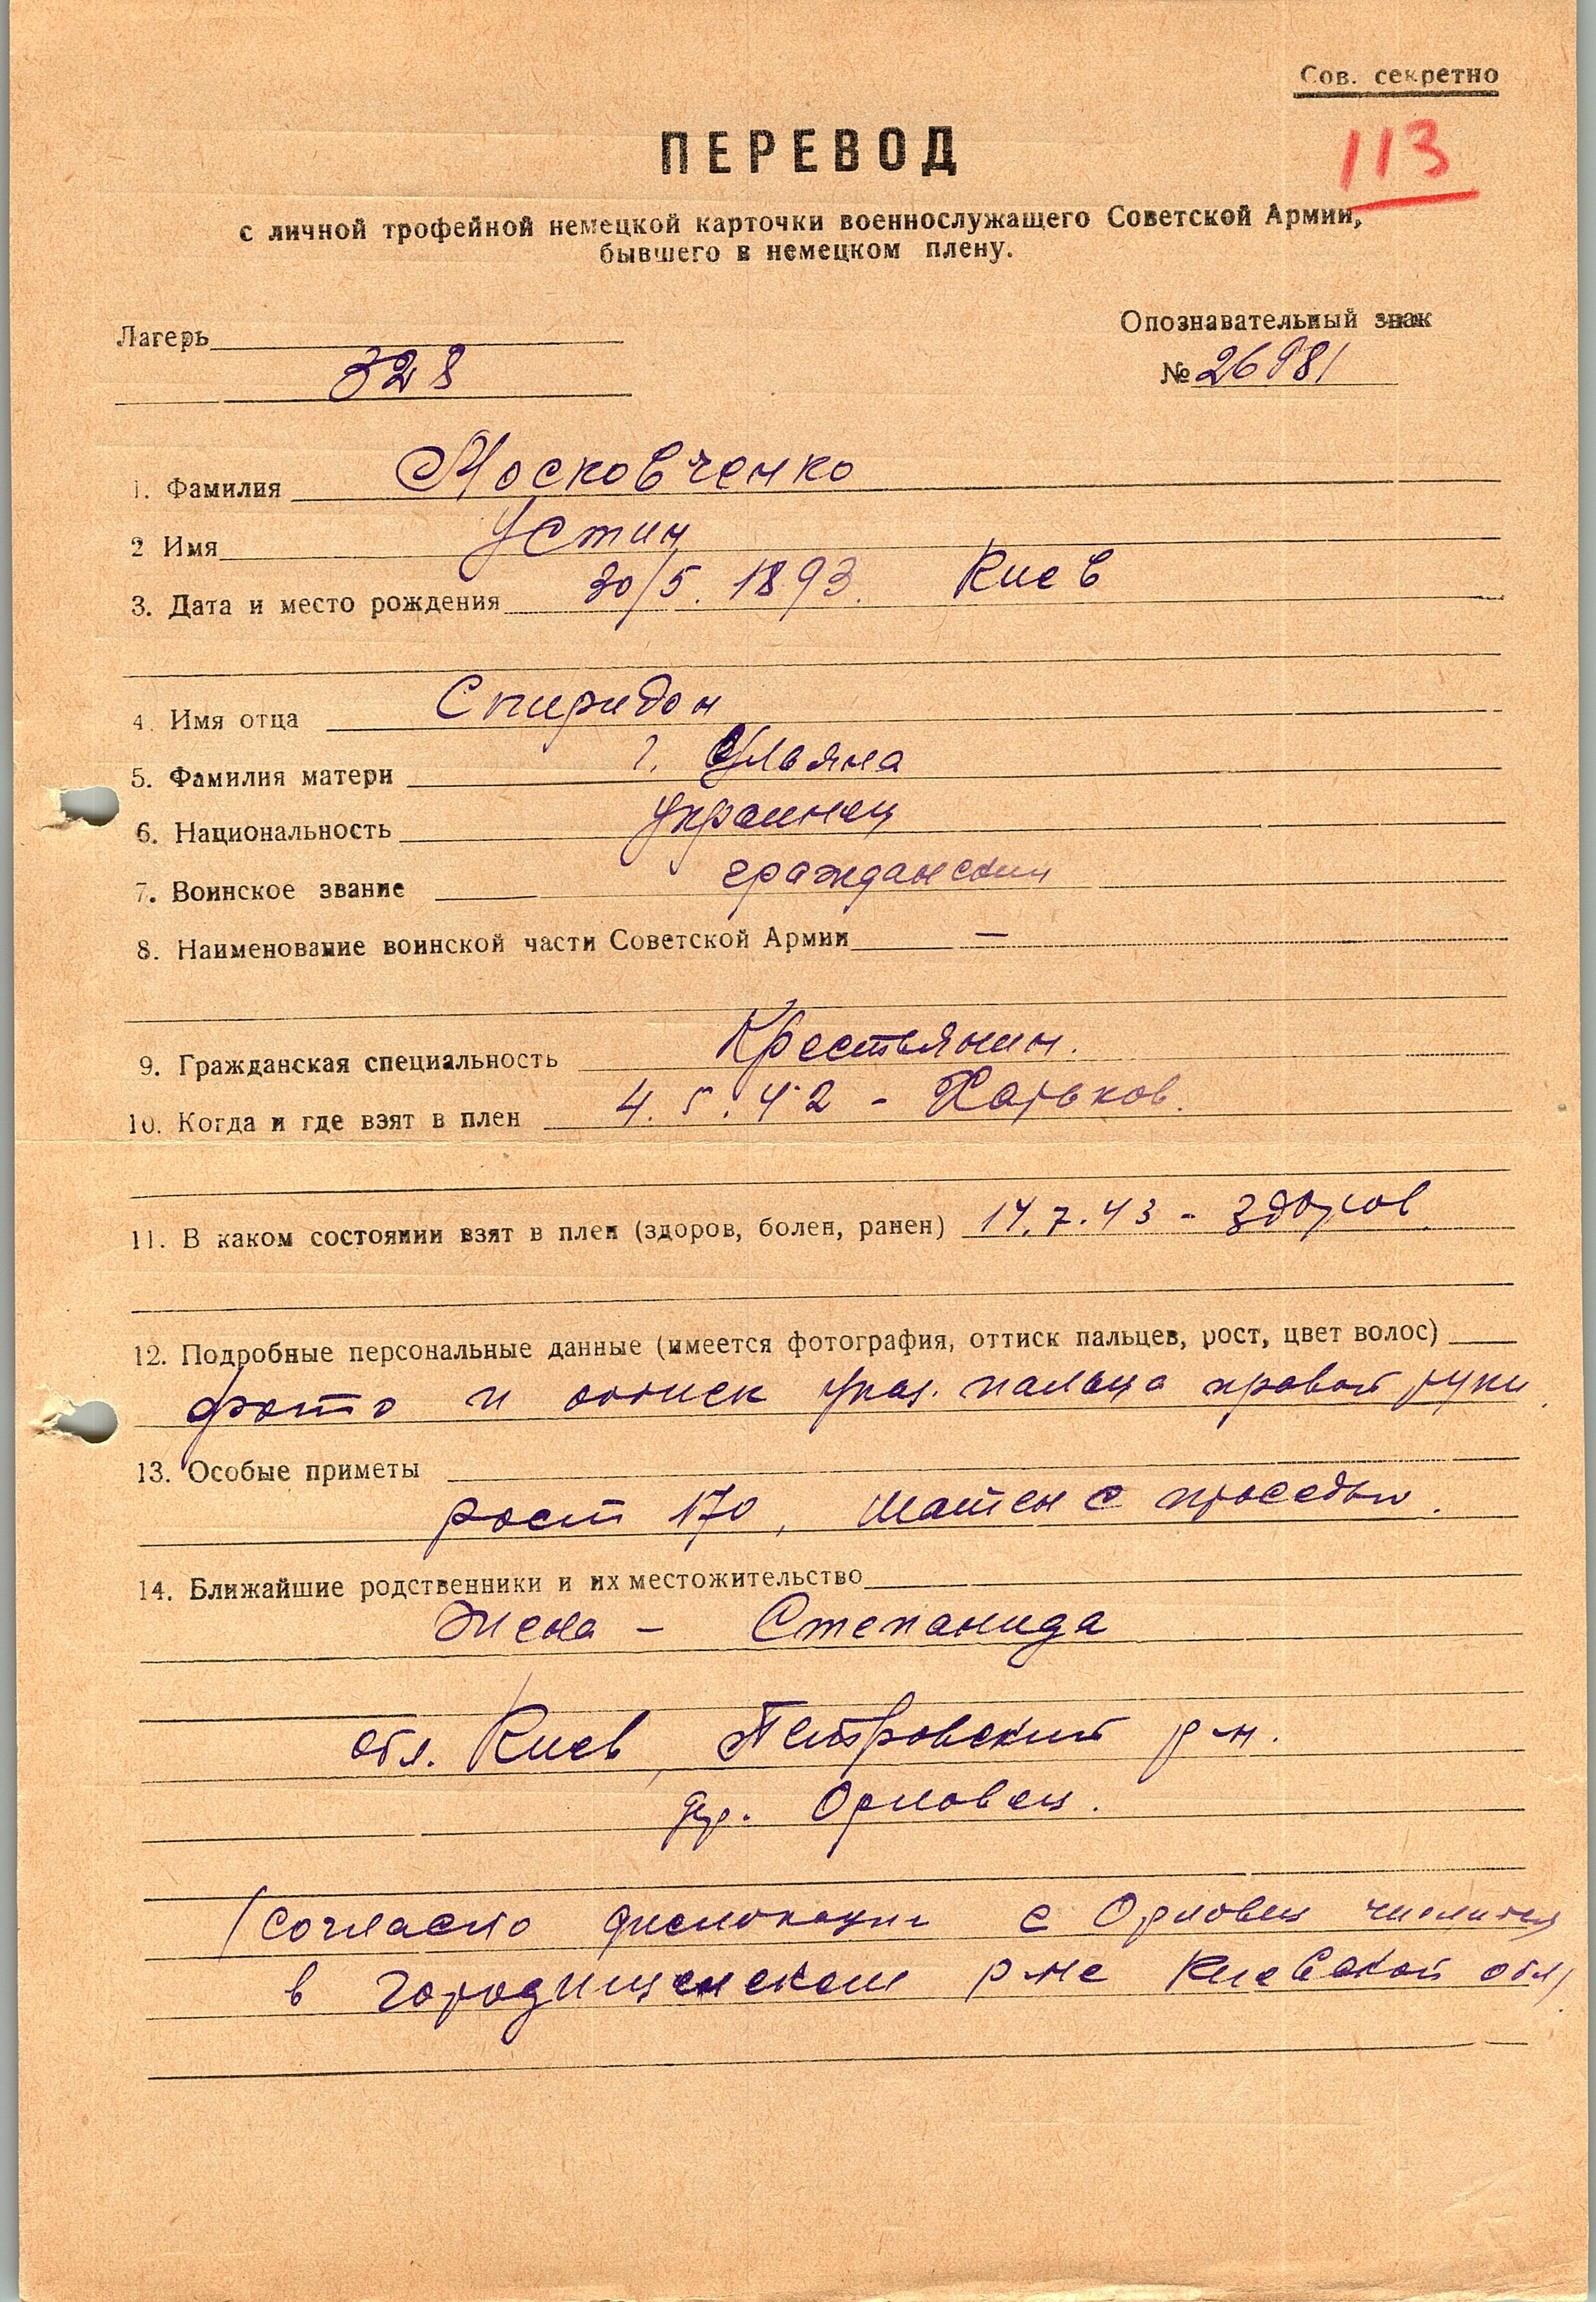 Сов. секретно
113
ПЕРЕВОД
с личной трофейной немецкой карточки военнослужащего Советской Армии,
бывшего в немецком плену.
Лагерь
328
Опознавательный знак
№ 26981
1. Фамилия Московченко
2 Имя Устин
3. Дата и место рождения 30/5. 1893. Киев
4. Имя отца Спиридон
5. Фамилия матери Ульяна
6. Национальность украинец
7. Воинское звание гражданский
8. Наименование воинской части Советской Армии —
9. Гражданская специальность Крестьянин.
10. Когда и где взят в плен 4.5.42 - Харьков.
11. В каком состоянии взят в плен (здоров, болен, ранен) 14.7.43 - здоров
12. Подробные персональные данные (имеется фотография, оттиск пальцев, рост, цвет волос)
фото и оттиск указ. пальца правой руки.
13. Особые приметы
рост 170, шатен с проседью.
14. Ближайшие родственники и их местожительство
Жена - Степанида
обл. Киев, Петровский р-н.
дер. Орловец.
(согласно дислокации с Орловец числится
в Городищенском р-не Киевской обл)